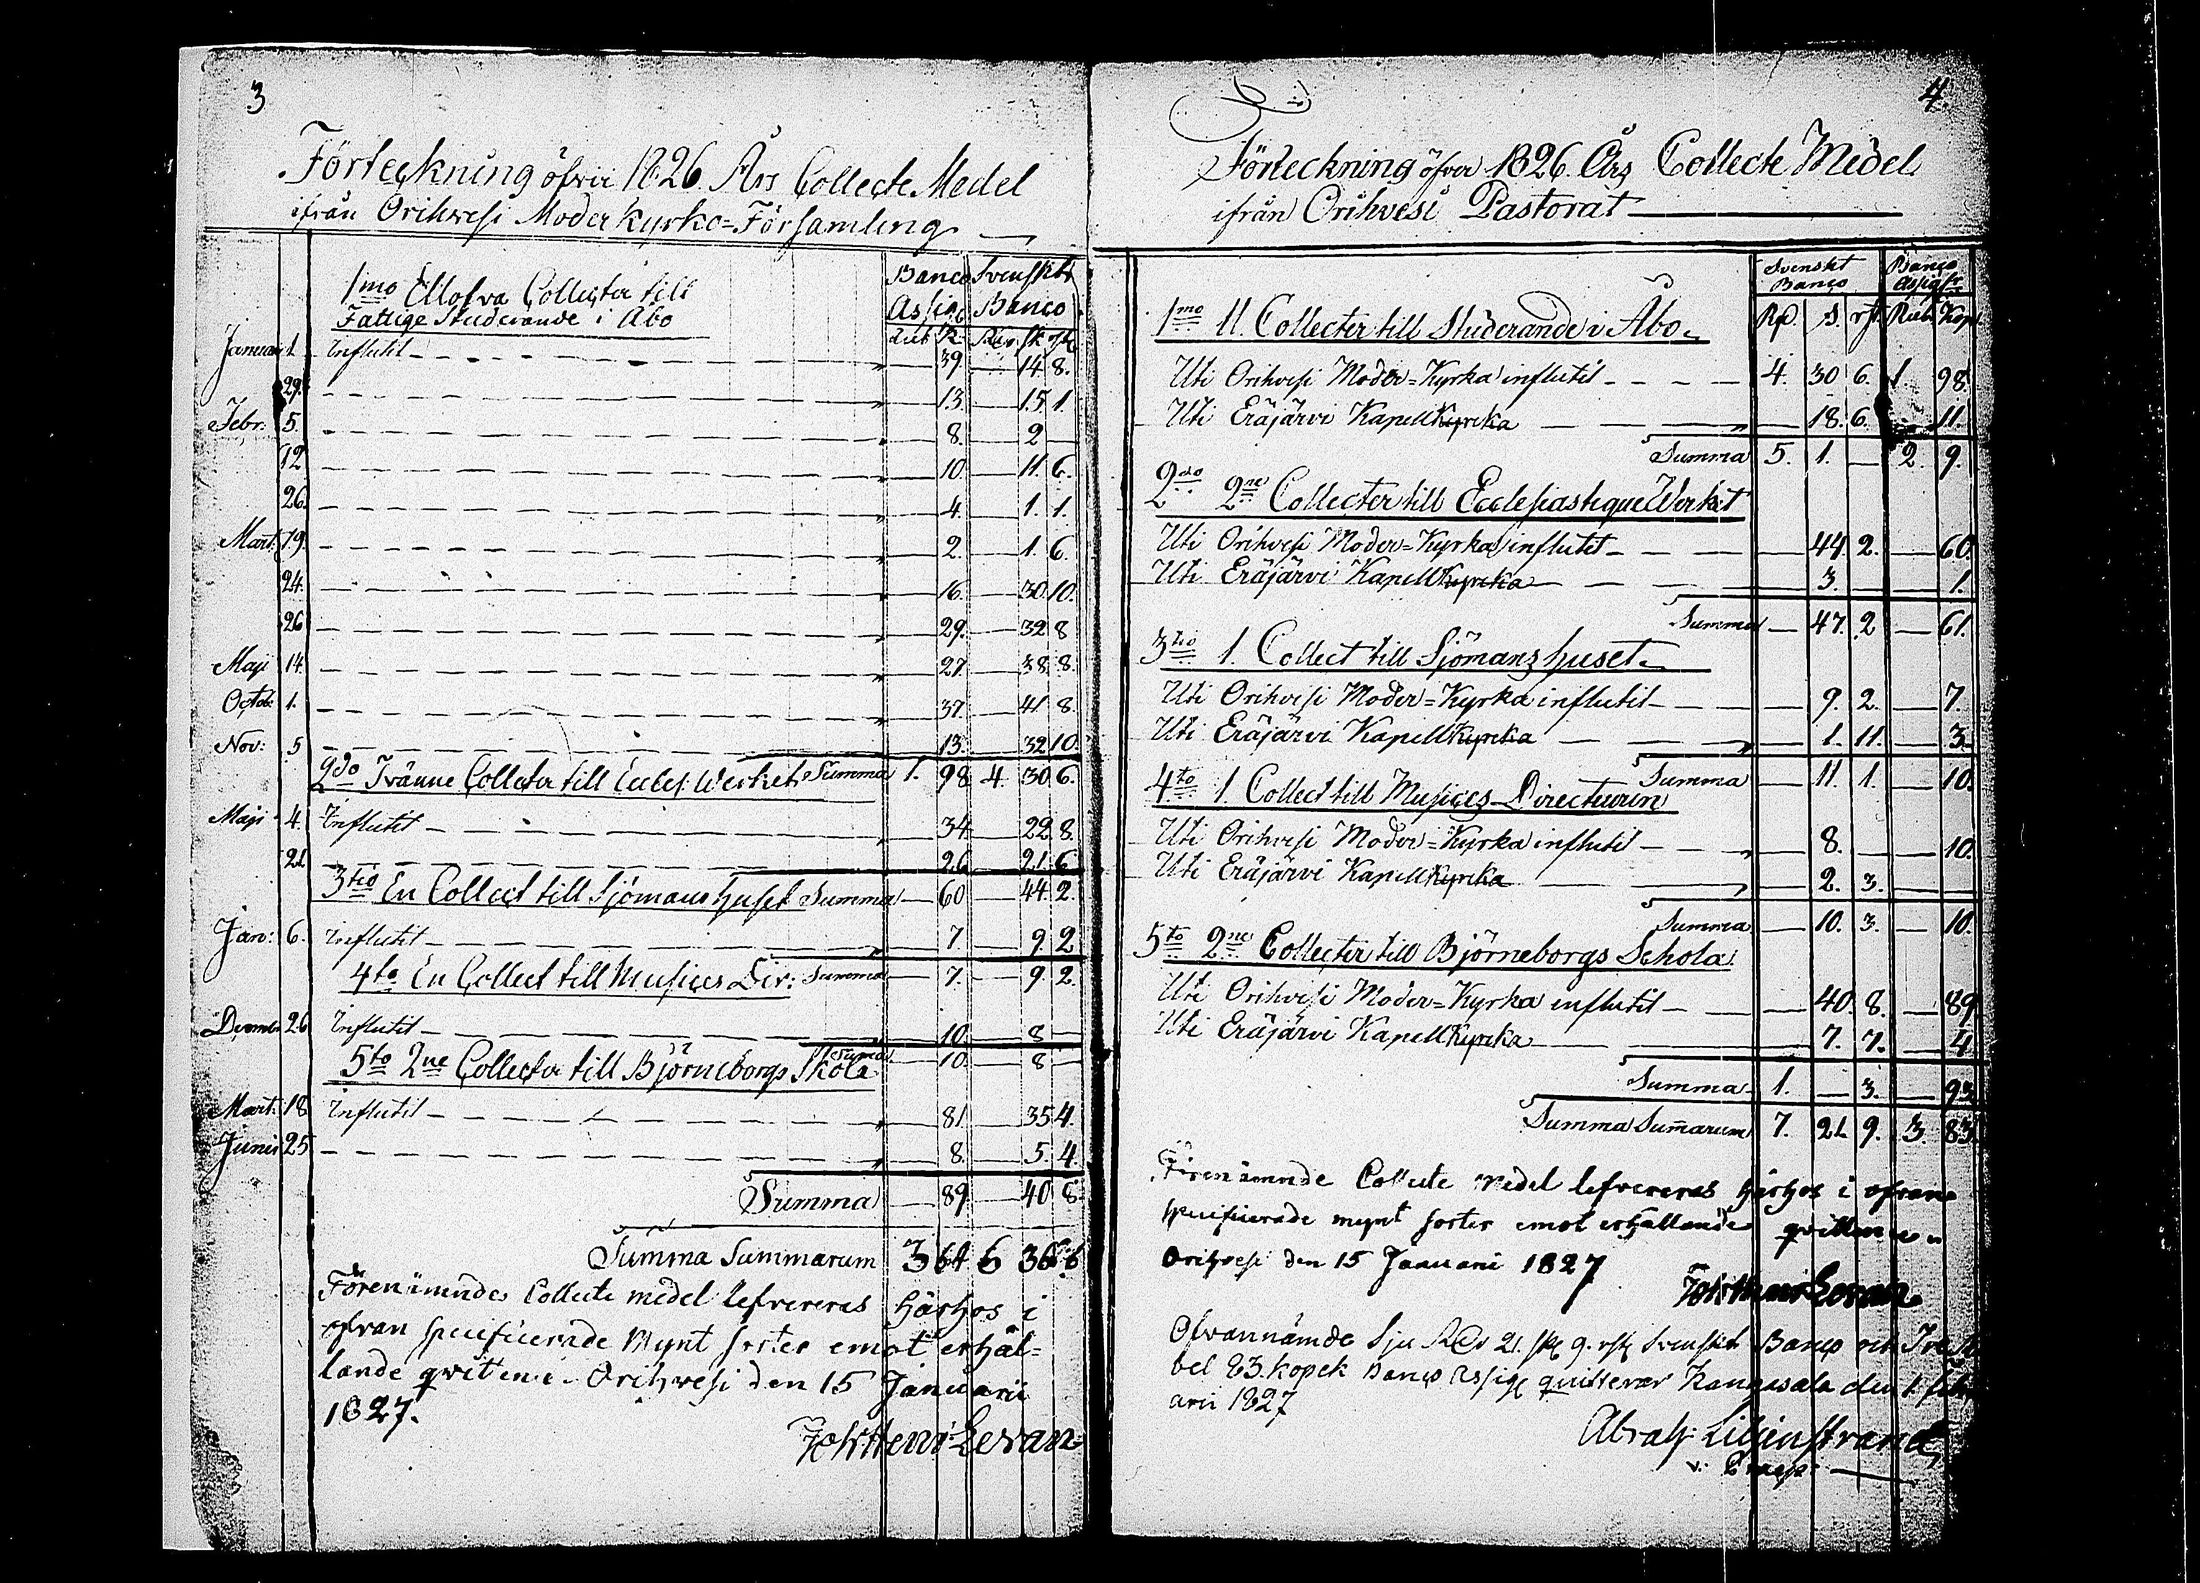 3
Förteckning öfver 1826 Års Collecte Medel
ifrån Orihvesi Moder Kyrko=Församling
Banco Svenskt
Assig. Banco
1mo Ellofva Collecter till
Fattige Studerande i Åbo
Rub K. Rdr sk rst
Januar 1. Influtit 39. 14 8.
29. 13. 15 1.
Febr: 5. 8. 2
12 10 11 6.
26. 4. 1. 1.
Mart. 19. 2. 1. 6.
24. 16. 30 10.
26 29. 32 8
Maji 14. 27. 38 8.
Octob. 1. 37. 41 8.
Nov: 5 13. 32 10.
2do Tvänne Collecter till Eccles: Werket Summa 1. 98 4. 30 6.
Maji 4. Influtit 34. 22 8.
21 26 21. 6
3tio En Collect till Sjömanshuset Summa 60 44. 2.
Jan: 6. Influtit 7 9. 2
4to En Collect till Musices Dir: Summa 7. 9. 2.
Decemb 26 Influtit 10. 8
5to 2ne Collecter till Björneborgs Skola Summa 10. 8
Mart. 18 Influtit 81. 35 4.
Junii 25 8. 5. 4.
Summa 89. 40 8
Summa Summarum 3 64 6 36 6
Förenämnde Collecte medel lefvereras härhos i
ofvan specificerade Mynt sorter emot erhål=
lande qvitence. Orihvesi den 15 Januarii
1827.
Joh Henr Levan
4.
Förteckning öfver 1826 Års Collecte Medel
ifrån Orihvesi Pastorat
Svenskt Banco
Banco Assigt
Rd s. rst Rub Kop
1mo 11. Collecter till Studerande i Åbo
Uti Orihvesi Moder=Kyrka influtit 4. 30 6. 1. 98.
Uti Eräjärvi Kapell Kyrka 18. 6. 11.
Summa 5. 1. 2. 9.
2do 2ne Collecter till Ecclesiastique Werket
Uti Orihvesi Moder=Kyrka influtit 44. 2. 60.
Uti Eräjärvi Kapell Kyrka 3. 1.
Summa 47. 2 61.
3tio 1. Collect till Sjömanshuset
Uti Orihvesi Moder=Kyrka influtit 9. 2. 7.
Uti Eräjärvi Kapell Kyrka 1. 11. 3
Summa 11. 1. 10.
4to 1. Collect till Musices Directeuren
Uti Orihvesi Moder=Kyrka influtit 8. 10.
Uti Eräjärvi Kapell Kyrka 2. 3.
Summa 10. 3. 10.
5to 2ne Collecter till Björneborgs Schola
Uti Orihvesi Moder=Kyrka influtit 40. 8. 89
Uti Eräjärvi Kapell Kyrka 7. 7. 4
Summa 1. 3. 93
Summa Summarum 7. 21 9. 3. 83.
Förenämnde Collecte medel lefvereras härhos i ofvan
specificerade mynt sorter emot erhållande qvittence
Orihvesi den 15 Januarii 1827
Joh Henr Levan
Ofvannämde Sju Rdr 21. sk 9. rst Svenskt Banco och Tre Ru
bel 83. kopek Banco Assig quitterar Kangasala den 1 febru
arii 1827
Abrah: Liljenstrand
v. Præps: